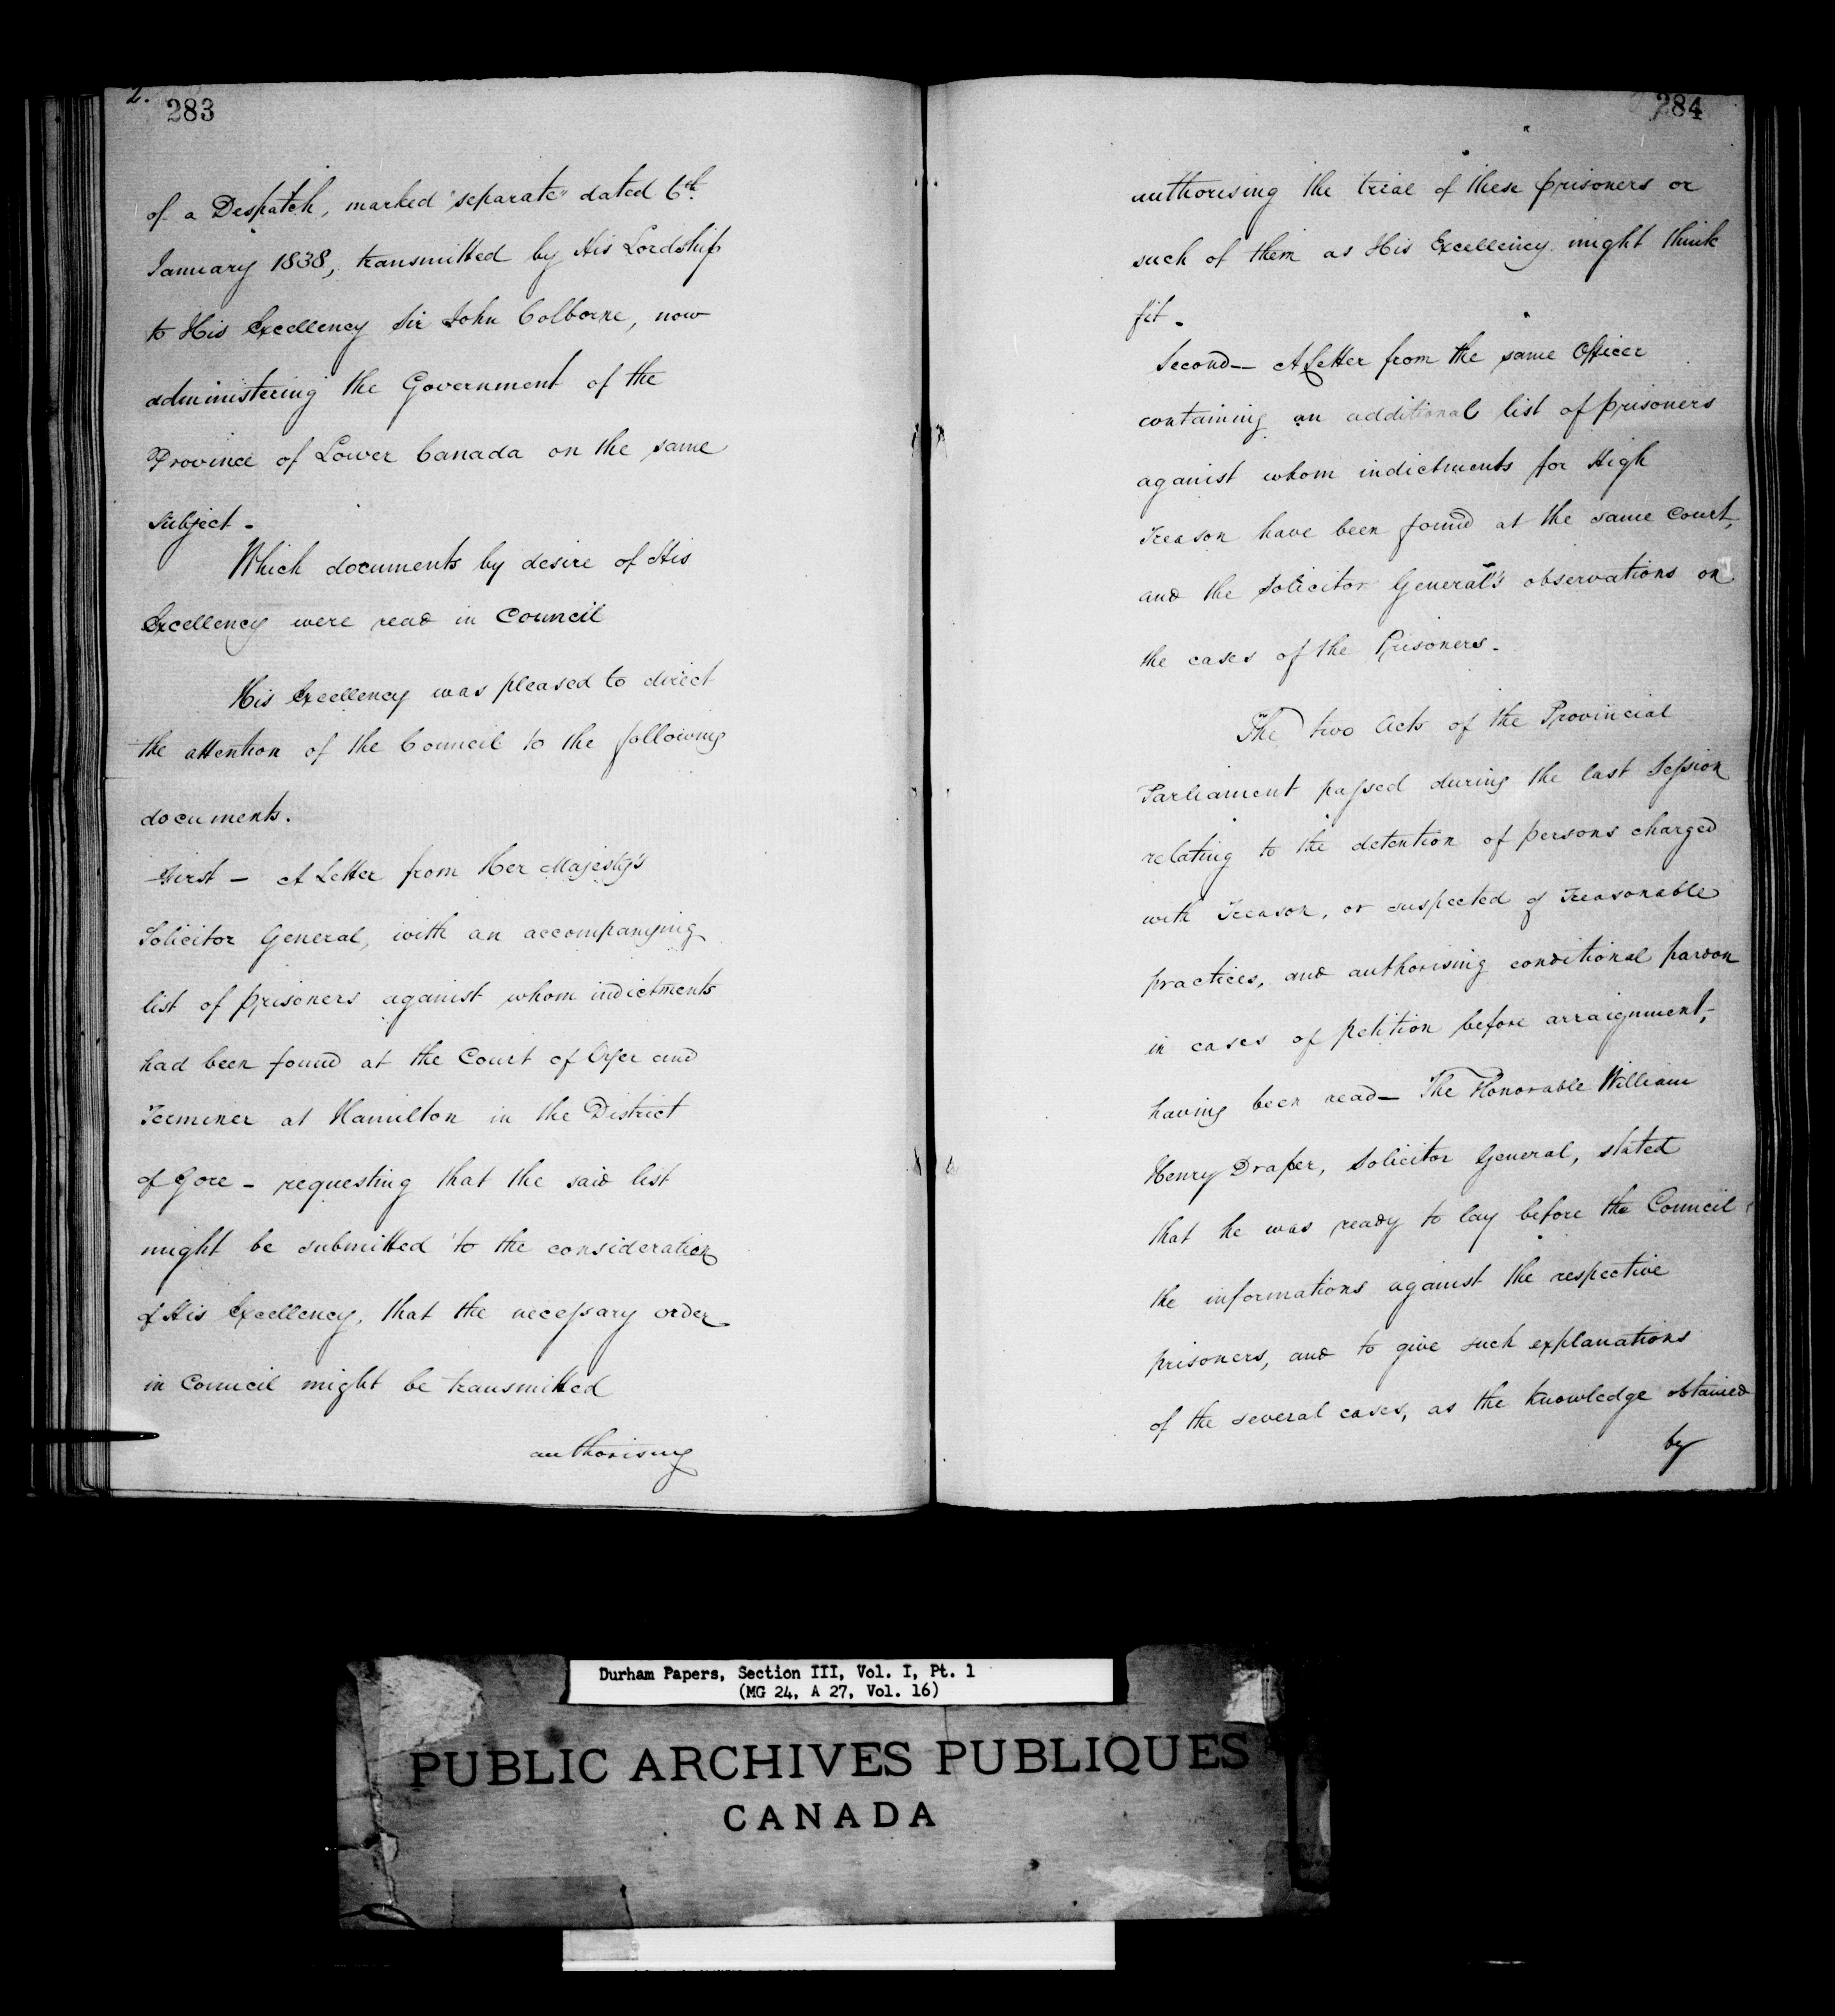 2.
283
of a Despatch, marked "separate" dated 6th
January 1838, transmitted by His Lordship
to His Excellency Sir John Colborne, now
administering the Government of the
Province of Lower Canada on the same
subject -
Which documents by desire of His
Excellency were read in Council
His Excellency was pleased to direct
the attention of the Council to the following
documents.
First - A Letter from Her Majesty's
Solicitor General, with an accompanying
list of prisoners against whom indictments
had been found at the Court of Oyer and
Terminer at Hamilton in the District
of Gore - requesting that the said list
might be submitted to the consideration
of His Excellency, that the necessary order
in Council might be transmitted
authorising
284
authorising the trial of these prisoners or
such of them as His Excellency might think
fit -
Second - A Letter from the same Officer
containing an additional list of prisoners
against whom indictments for High
Treason have been found at the same Court,
and the Solicitor General's observations on
the cases of the Prisoners -
The two Acts of the Provincial
Parliament passed during the last Session
relating to the detention of persons charged
with Treason, or suspected of Treasonable
practices, and authorising conditional pardon
in cases of petition before arraignment,
having been read - The Honorable William
Henry Draper, Solicitor General, stated
that he was ready to lay before the Council
the informations against the respective
prisoners, and to give such explanations
of the several cases, as the knowledge obtained
by
Durham Papers, Section III, Vol. I, Pt. 1
(MG 24, A 27, Vol. 16)
PUBLIC ARCHIVES PUBLIQUES
CANADA